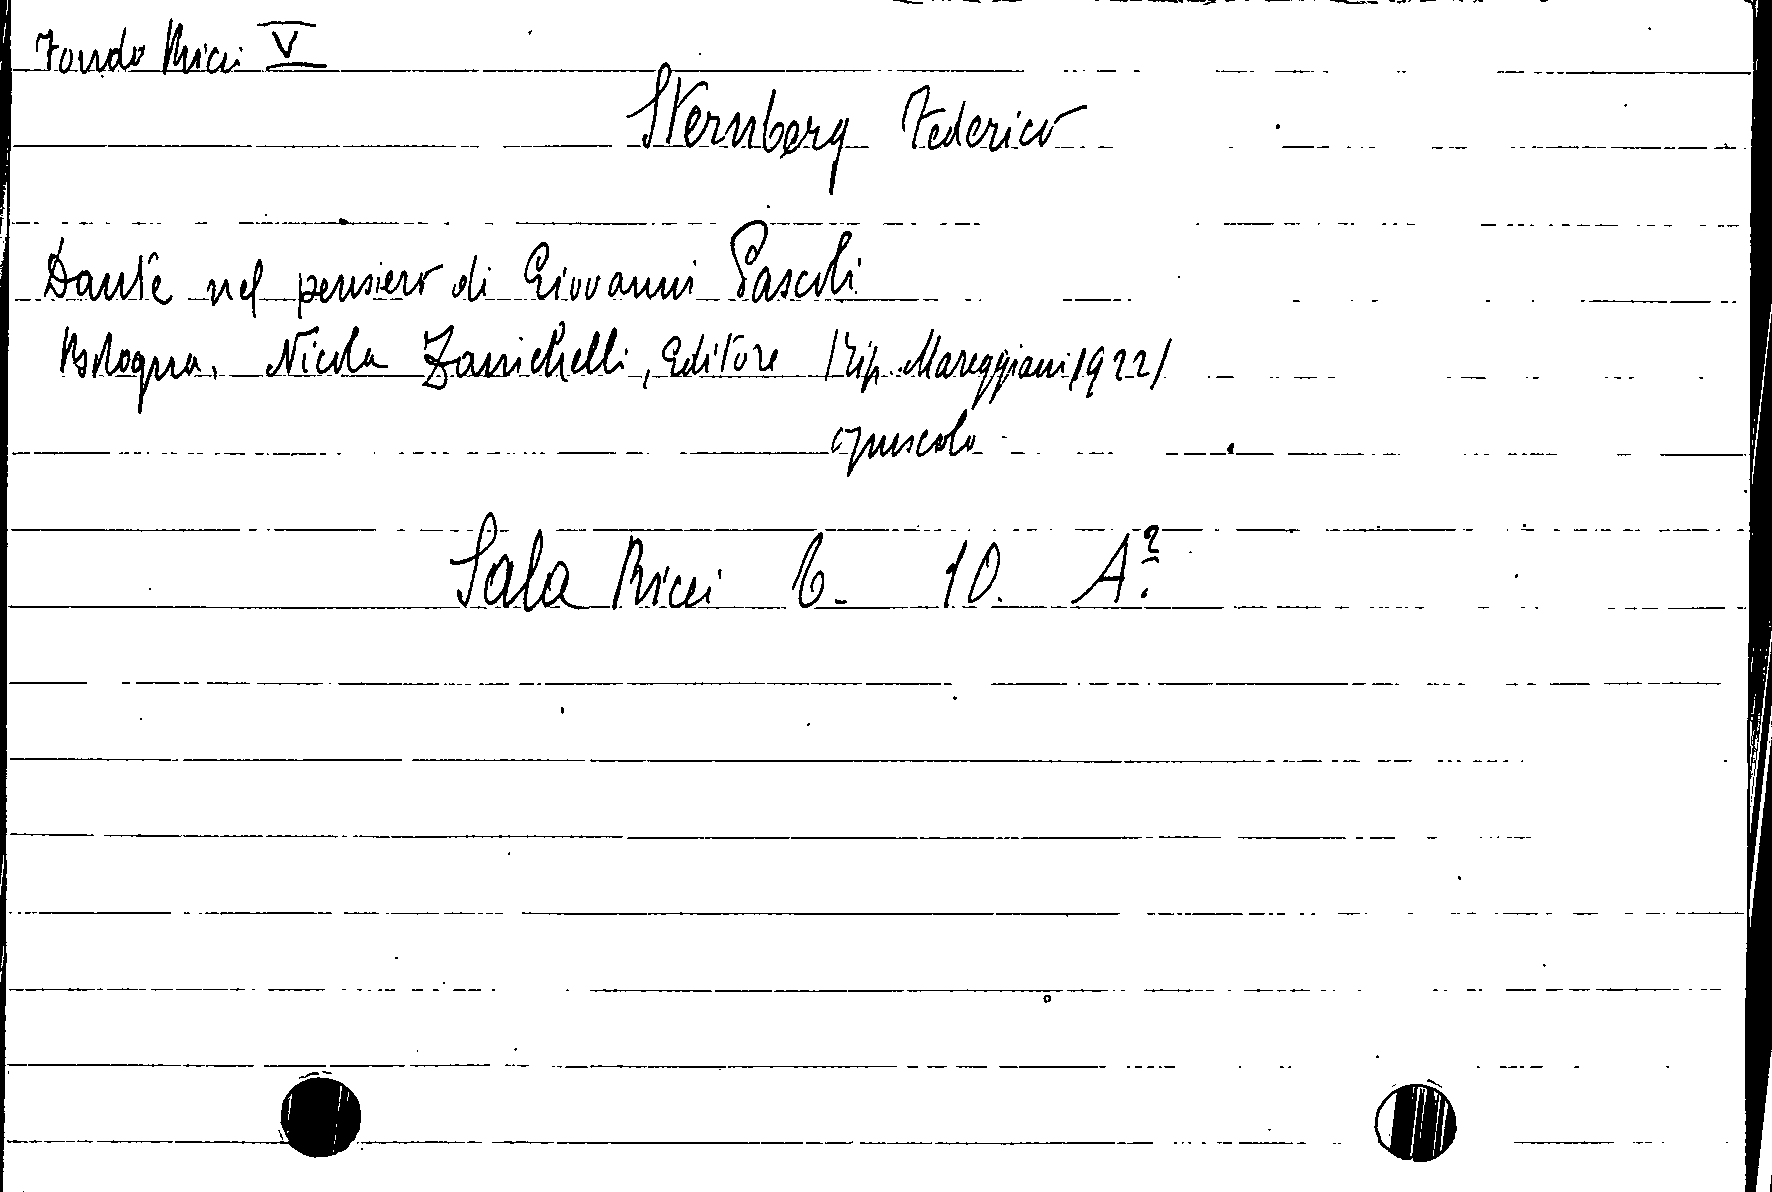 Fondo Ricci V
Sternberg Federico
Dante nel pensiero di Giovanni Pascoli
Bologna, Nicola Zanichelli, Editore /Tip. Mareggiani 1922/
opuscolo
Sala Ricci 6. 10. A.2